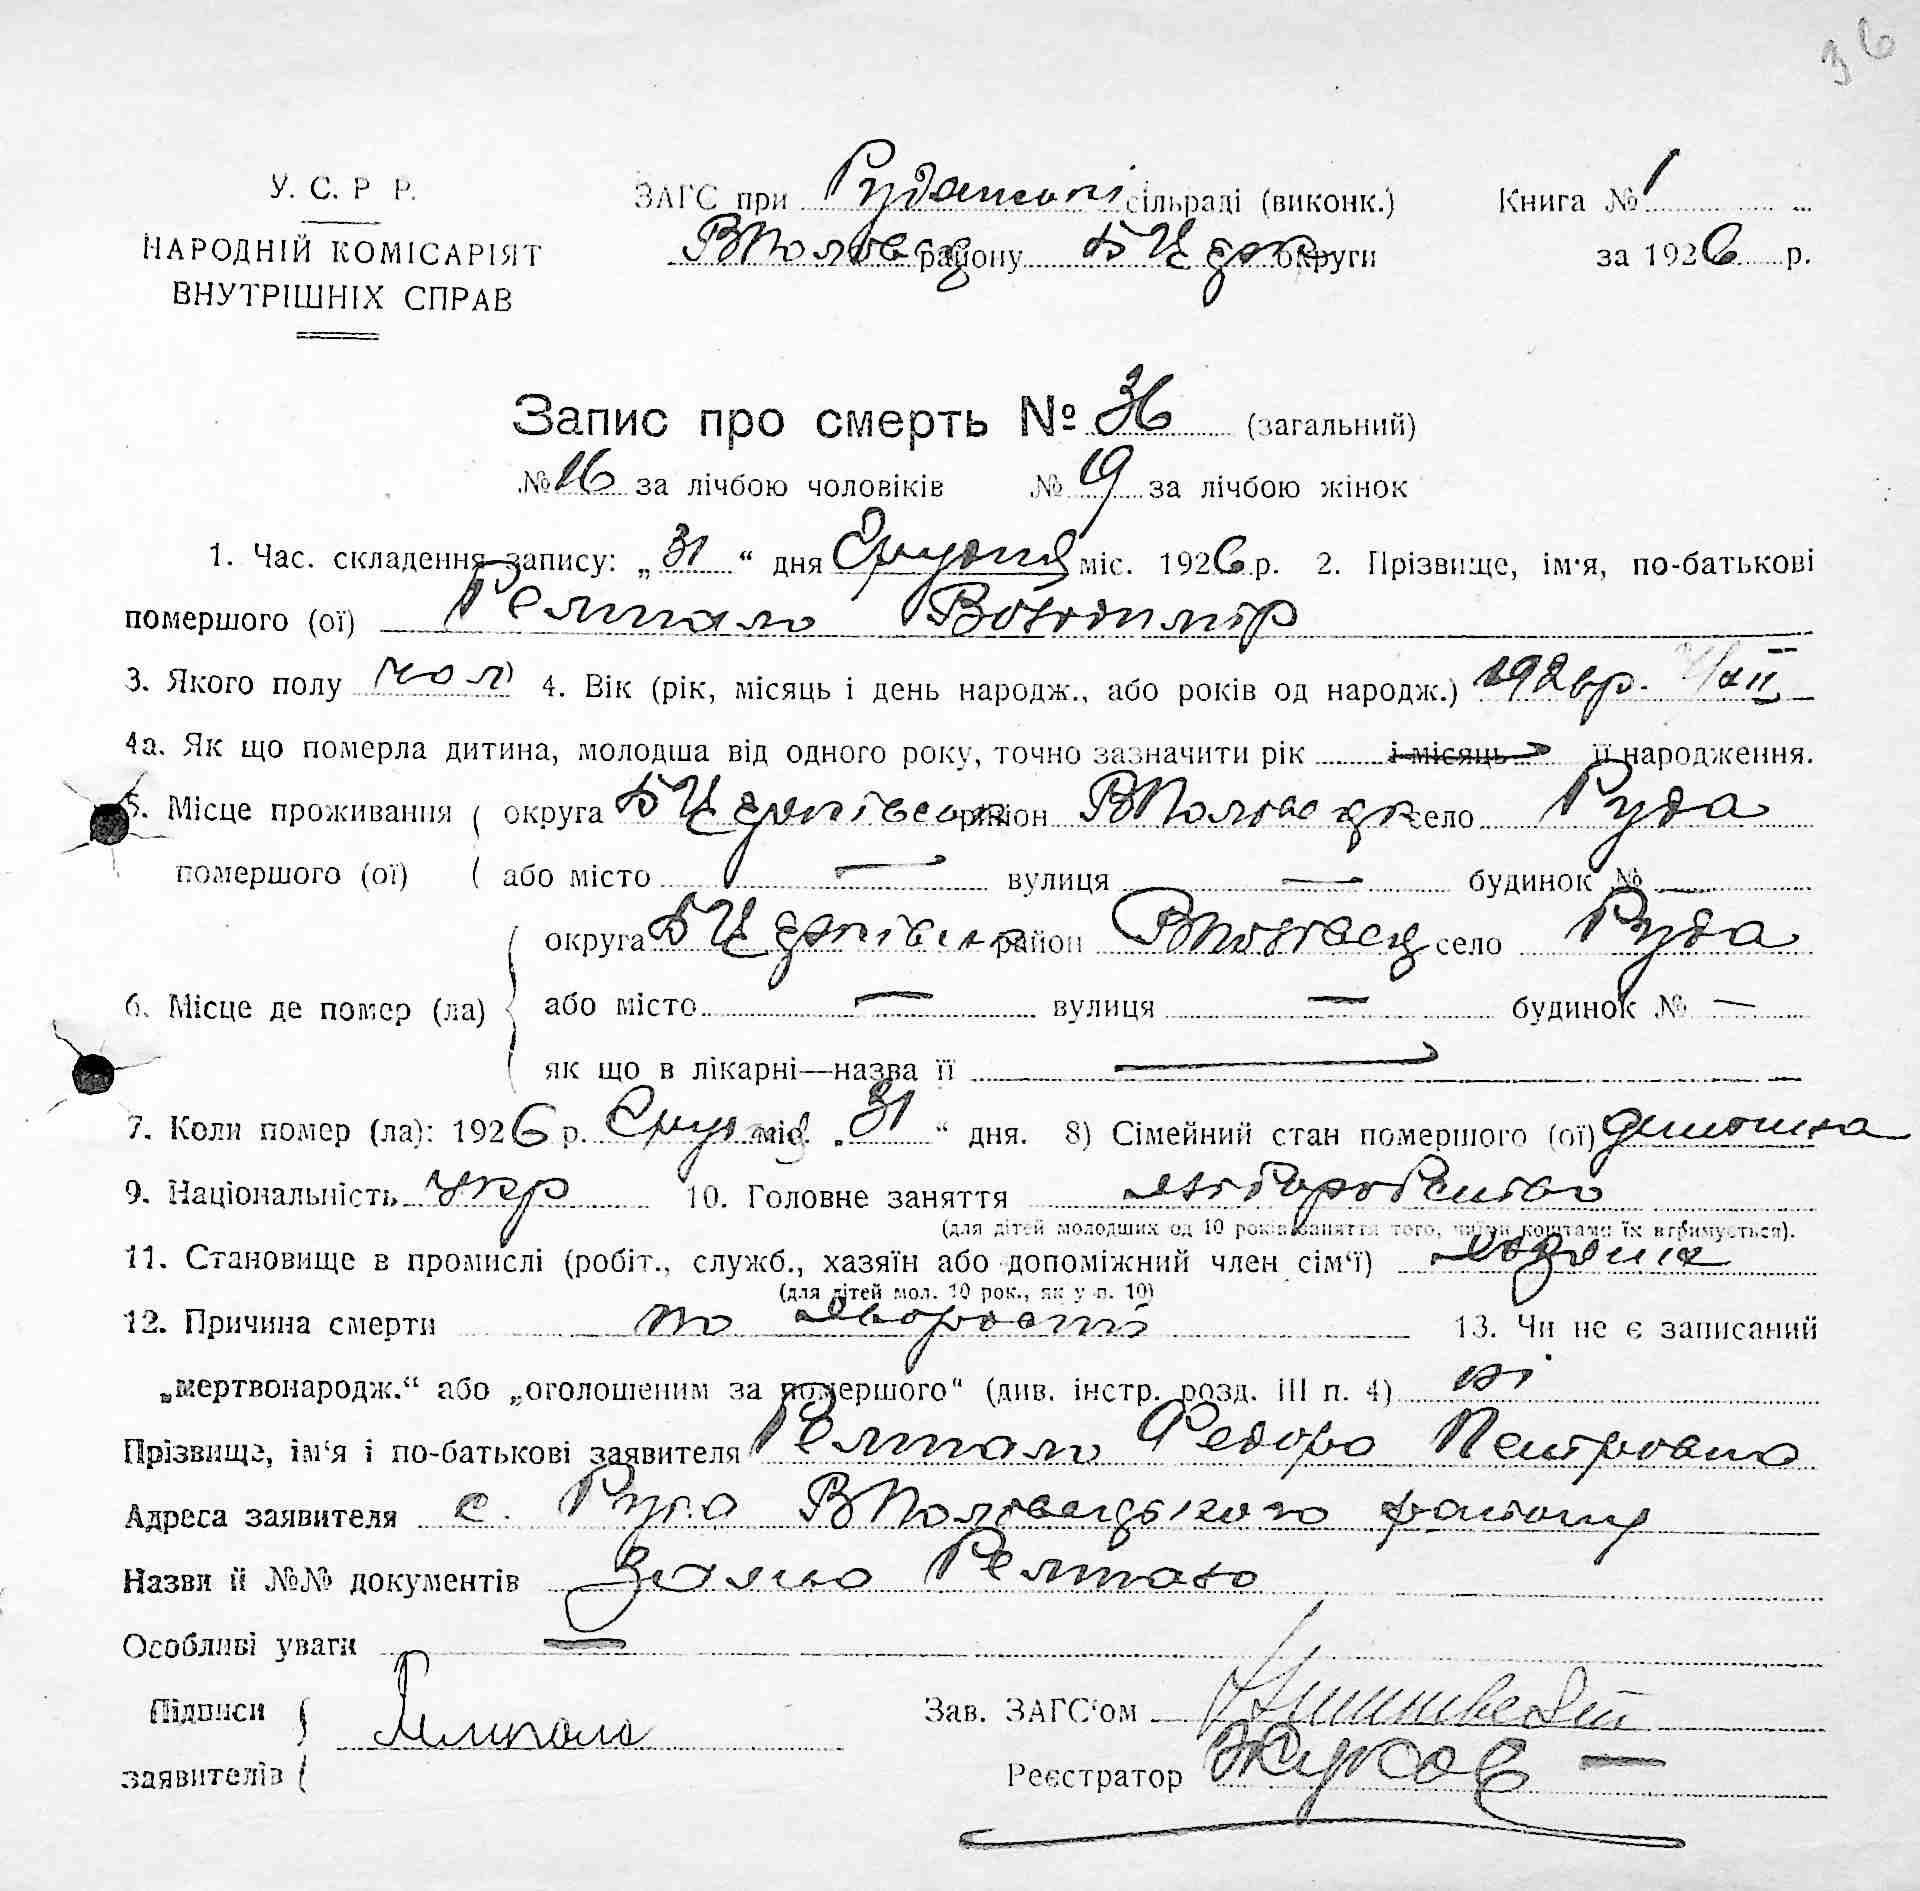 36
У. С. Р Р.
НАРОДНІЙ КОМІСАРІЯТ
ВНУТРІШНІХ СПРАВ
ЗАГС при Рудянській сільраді (виконк.)
ВПоловец району БЦерк округи
Книга № 1
за 1926 р.
Запис про смерть № 36 (загальний)
№ 16 за лічбою чоловіків № 19 за лічбою жінок
1. Час. складення запису: „31“ дня Грудня міс. 1926 р. 2. Прізвище, ім'я, по-батькові
помершого (ої) Ремпало Володимір
3. Якого полу чол 4. Вік (рік, місяць і день народж., або років од народж.) 1926р. /XII
4а. Як що померла дитина, молодша від одного року, точно зазначити рік і місяць її народження.
5. Місце проживання ( округа БЦерківська район ВПоловецьк село Руда
помершого (ої) ( або місто — вулиця — будинок №
6. Місце де помер (ла) { округа БЦерківськ район ВПоловец село Руда
або місто — вулиця — будинок № —
як що в лікарні—назва її —
7. Коли помер (ла): 1926 р. Грудня міс. „31“ дня. 8) Сімейний стан помершого (ої) дитина
9. Національність укр 10. Головне заняття хліборобство
(для дітей молодших од 10 років заняття того, чиїми коштами їх втримується).
11. Становище в промислі (робіт., служб., хазяїн або допоміжний член сім'ї) хозяин
(для дітей мол. 10 рок., як у п. 10)
12. Причина смерти по хворості 13. Чи не є записаний
„мертвонародж.“ або „оголошеним за помершого“ (див. інстр. розд. III п. 4) ні
Прізвище, ім'я і по-батькові заявителя Ремпало Федора Петровна
Адреса заявителя с. Руда ВПоловецького району
Назви й №№ документів Заява Ремпало
Особливі уваги —
Підписи } Ремпало
заявителів (
Зав. ЗАГС'ом
Реєстратор Жуков